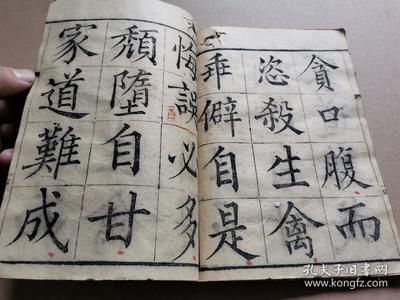 貪口腹而
恣殺生禽
乖僻自是
悔誤必多
頹墮自甘
家道難成
孔夫子旧书网
www.kongfz.com